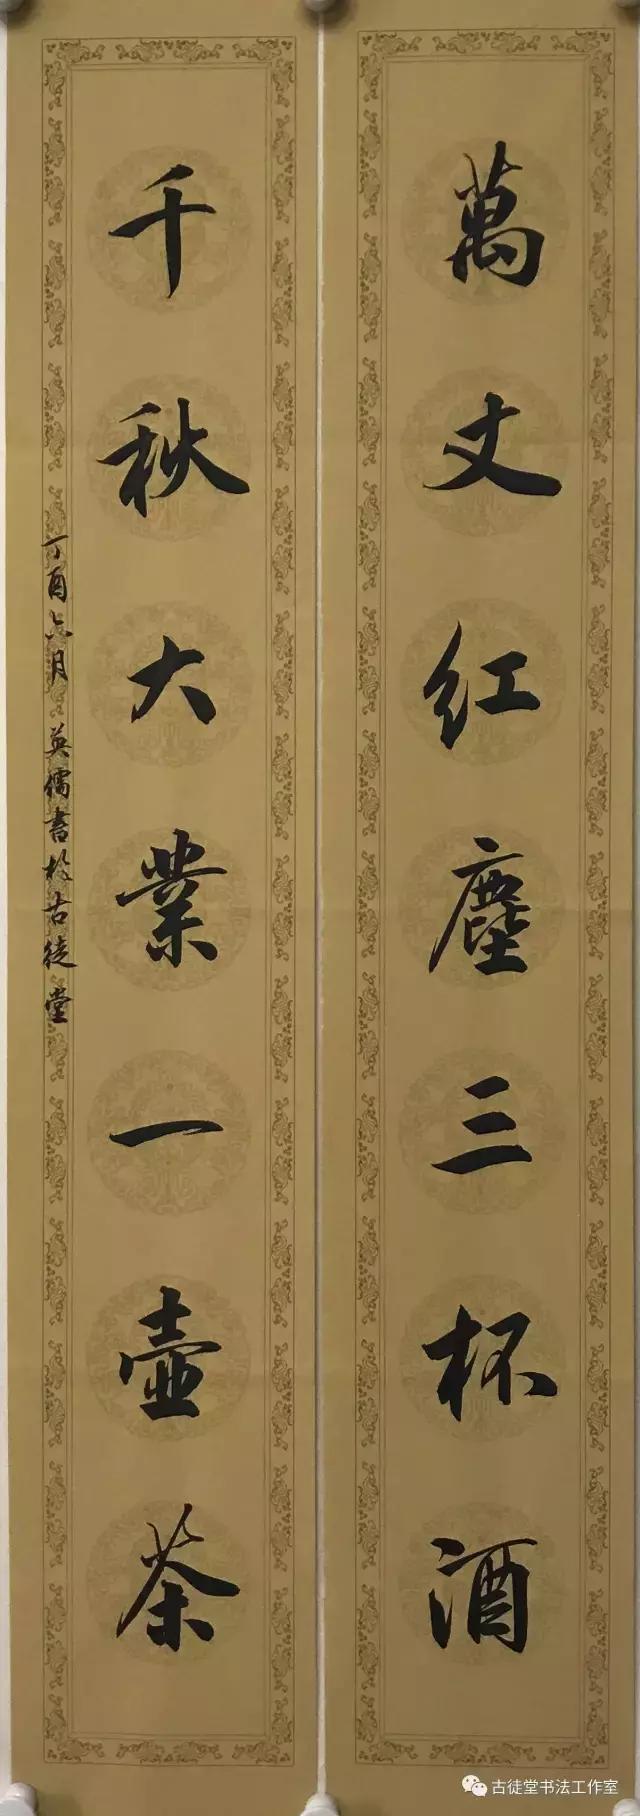 萬丈红塵三杯酒
千秋大業一壺茶
丁酉六月 英儒書於古徒堂
古徒堂书法工作室